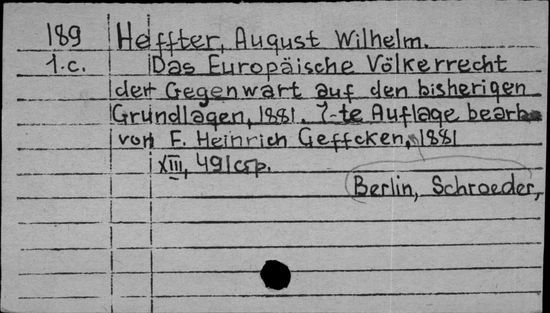 189 Heffter, August Wilhelm.
1.c. Das Europäische Völkerrecht
der Gegenwart auf den bisherigen
Grundlagen, 1881. 7-te Auflage bearb
von F. Heinrich Geffcken, 1881
XIII, 491 стр.
Berlin, Schroeder,